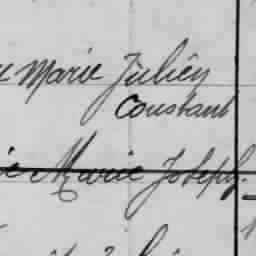 Marie Julien
Constant
Marie Joseph.